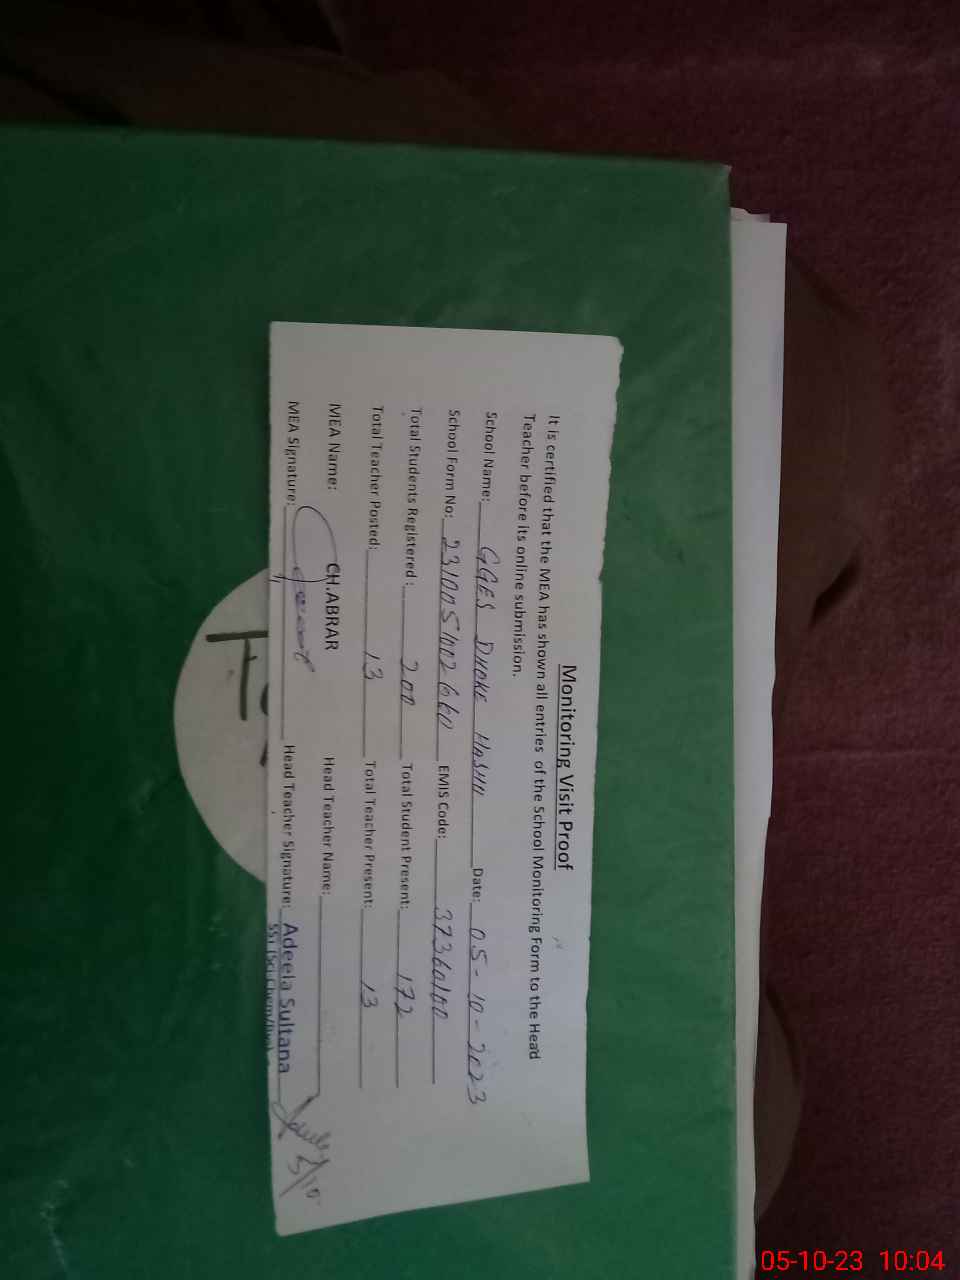 Monitoring Visit Proof
It is certified that the MEA has shown all entries of the School Monitoring Form to the Head
Teacher before its online submission.
School Name: GGES DHOKE HASHU Date: 05-10-2023
School Form No: EMIS Code: 37360100
Total Students Registered: 200 Total Student Present: 172
Total Teacher Posted: 13 Total Teacher Present: 13
MEA Name: CH.ABRAR Head Teacher Name:
MEA Signature: Head Teacher Signature: Adeela Sultana
05-10-23 10:04